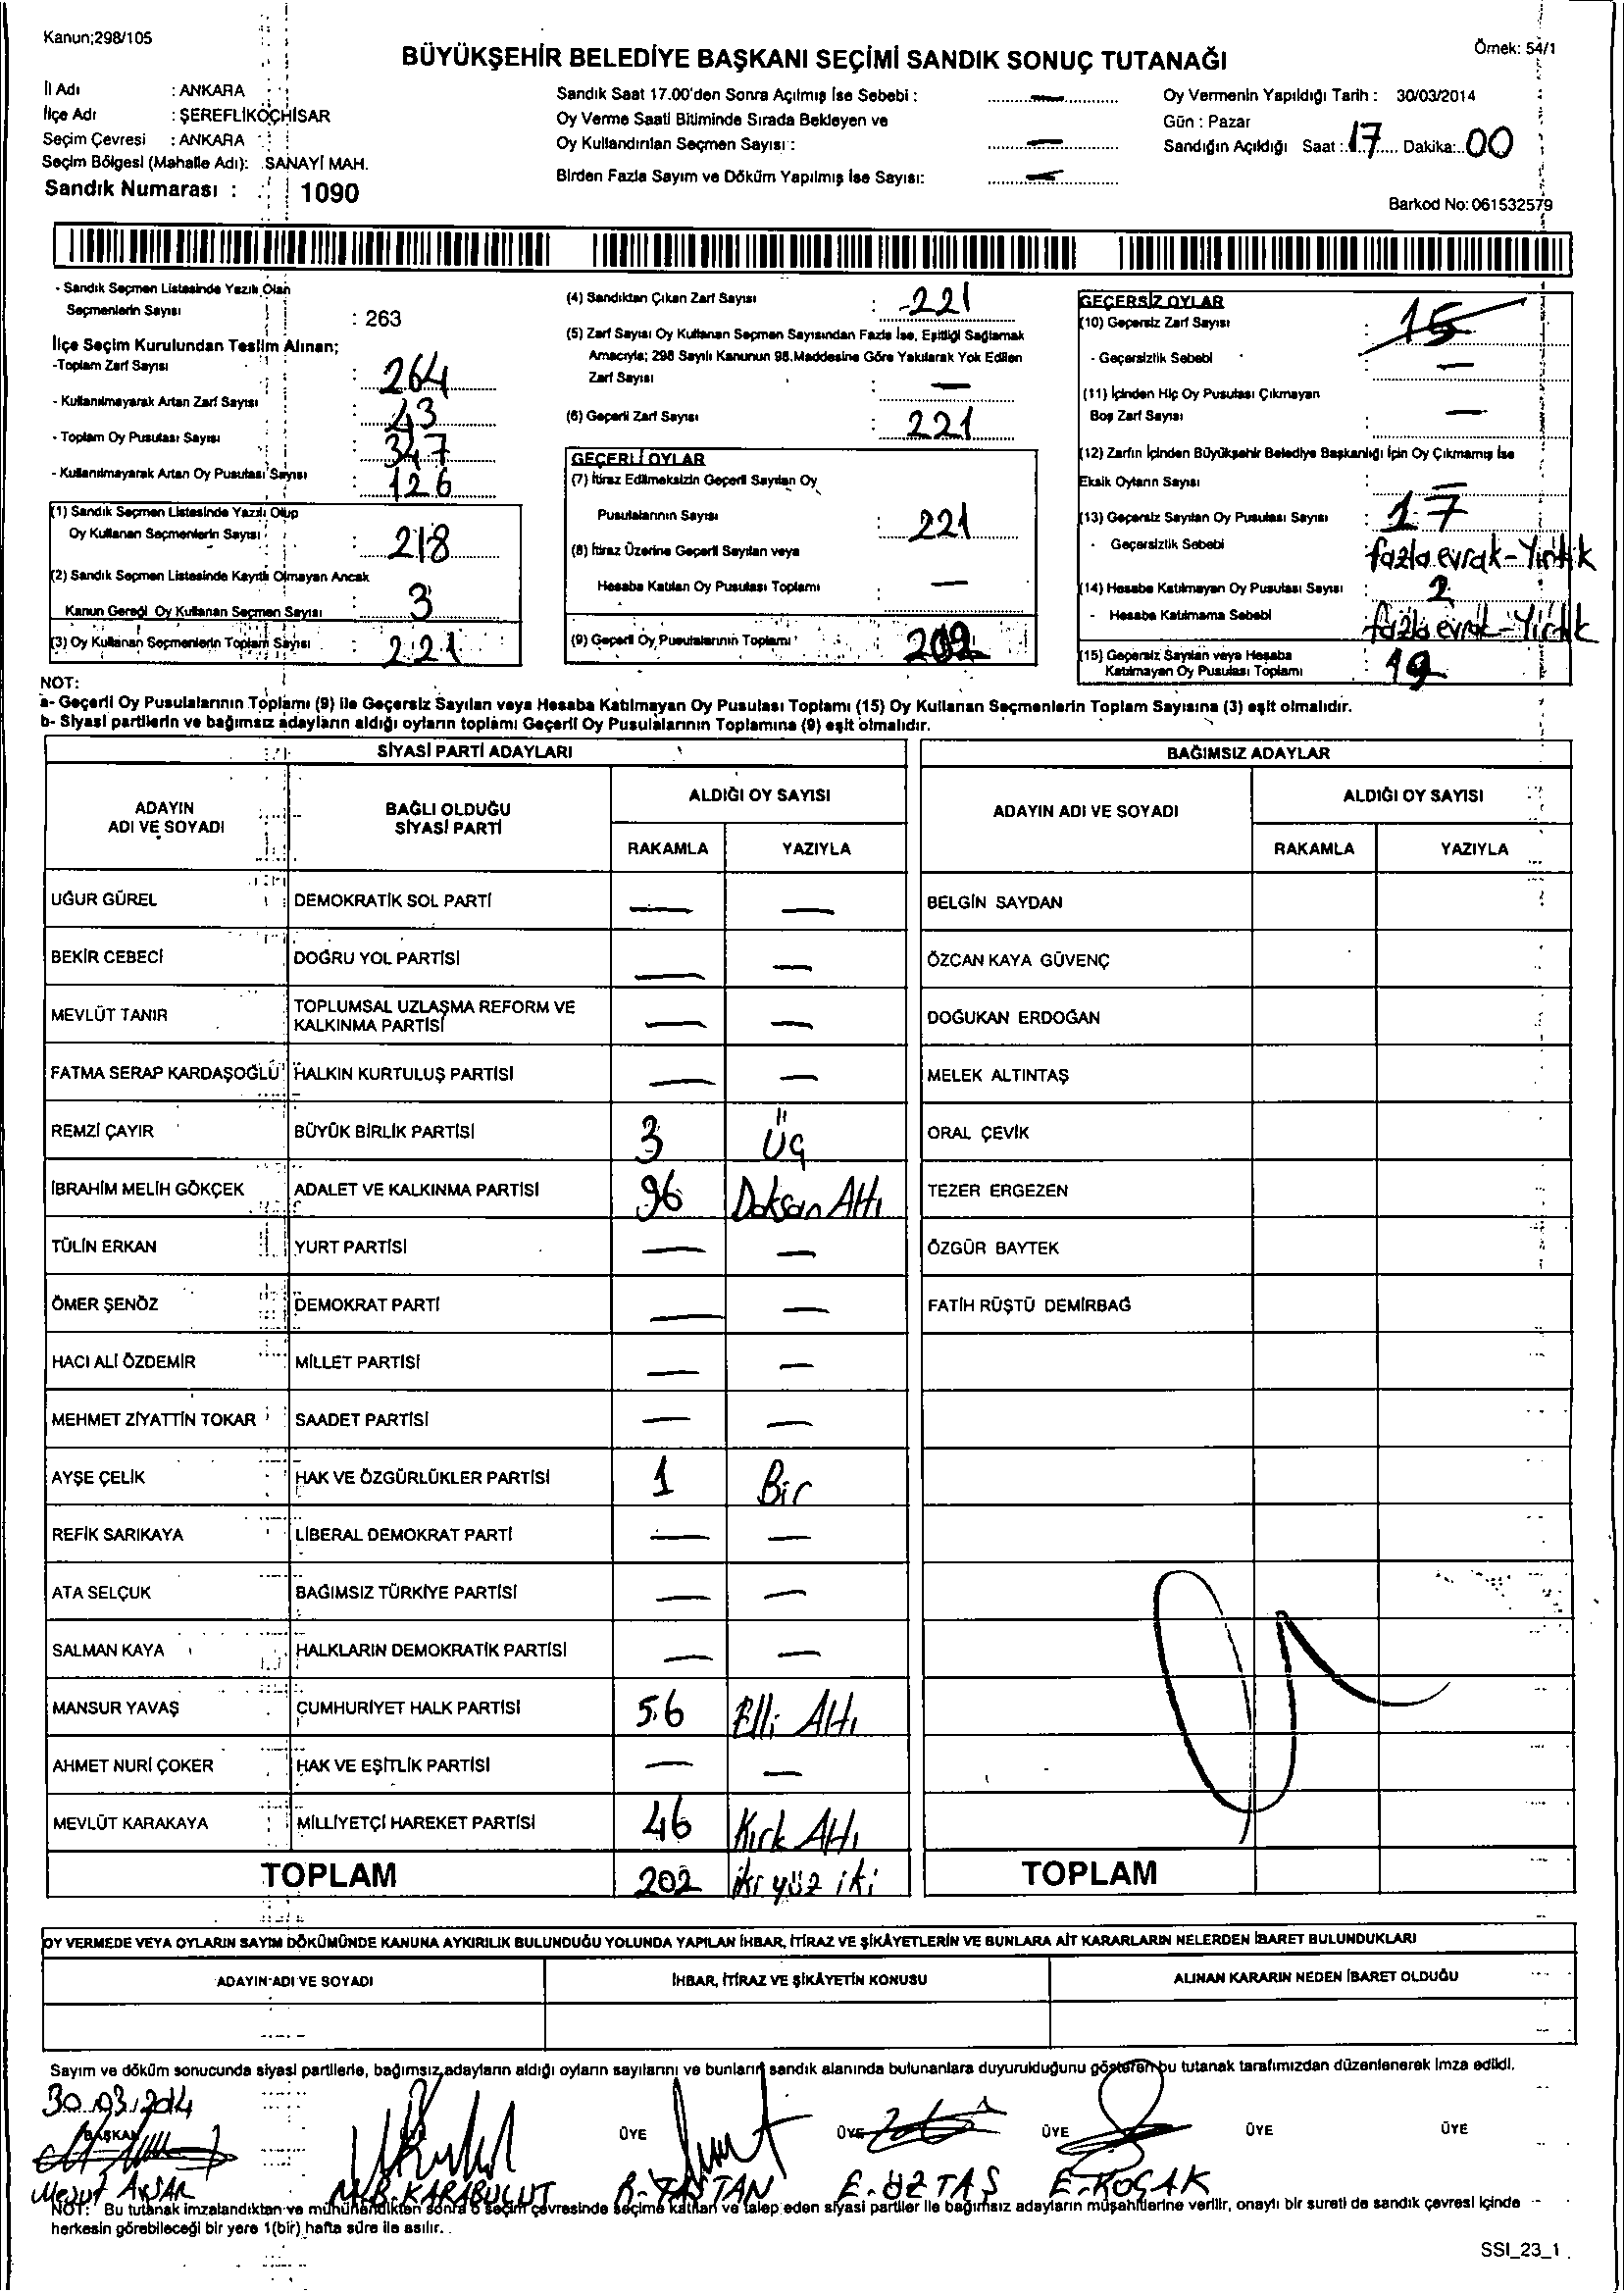 Kanun;298/105
Örnek: 54/1
BÜYÜKŞEHİR BELEDİYE BAŞKANI SEÇİMİ SANDIK SONUÇ TUTANAĞI
İl Adı : ANKARA
İlçe Adı : ŞEREFLİKOÇHİSAR
Seçim Çevresi : ANKARA
Seçim Bölgesi (Mahalle Adı): SANAYİ MAH.
Sandık Numarası : 1090
Sandık Saat 17.00'den Sonra Açılmış İse Sebebi : —
Oy Verme Saati Bitiminde Sırada Bekleyen ve
Oy Kullandırılan Seçmen Sayısı : —
Birden Fazla Sayım ve Döküm Yapılmış İse Sayısı: —
Oy Vermenin Yapıldığı Tarih : 30/03/2014
Gün : Pazar
Sandığın Açıldığı Saat : 17 Dakika: 00
Barkod No: 061532579
- Sandık Seçmen Listesinde Yazılı Olan
Seçmenlerin Sayısı : 263
İlçe Seçim Kurulundan Teslim Alınan;
-Toplam Zarf Sayısı : 264
- Kullanılmayarak Artan Zarf Sayısı : 43
- Toplam Oy Pusulası Sayısı : 347
- Kullanılmayarak Artan Oy Pusulası Sayısı : 126
(1) Sandık Seçmen Listesinde Yazılı Olup
Oy Kullanan Seçmenlerin Sayısı : 218
(2) Sandık Seçmen Listesinde Kayıtlı Olmayan Ancak
Kanun Gereği Oy Kullanan Seçmen Sayısı : 3
(3) Oy Kullanan Seçmenlerin Toplam Sayısı : 221
(4) Sandıktan Çıkan Zarf Sayısı : 221
(5) Zarf Sayısı Oy Kullanan Seçmen Sayısından Fazla İse, Eşitliği Sağlamak
Amacıyla; 298 Sayılı Kanunun 98.Maddesine Göre Yakılarak Yok Edilen
Zarf Sayısı : —
(6) Geçerli Zarf Sayısı : 221
GEÇERLİ OYLAR
(7) İtiraz Edilmeksizin Geçerli Sayılan Oy
Pusulalarının Sayısı : 221
(8) İtiraz Üzerine Geçerli Sayılan veya
Hesaba Katılan Oy Pusulası Toplamı : —
(9) Geçerli Oy Pusulalarının Toplamı : 202
GEÇERSİZ OYLAR
(10) Geçersiz Zarf Sayısı : 15
- Geçersizlik Sebebi : —
(11) İçinden Hiç Oy Pusulası Çıkmayan
Boş Zarf Sayısı : —
(12) Zarfın İçinden Büyükşehir Belediye Başkanlığı İçin Oy Çıkmamış İse
Eksik Oyların Sayısı : —
(13) Geçersiz Sayılan Oy Pusulası Sayısı : 17
- Geçersizlik Sebebi fazla evrak-Yırtık
(14) Hesaba Katılmayan Oy Pusulası Sayısı : 2
- Hesaba Katılmama Sebebi fazla evrak-Yırtık
(15) Geçersiz Sayılan veya Hesaba
Katılmayan Oy Pusulası Toplamı : 19
NOT:
a- Geçerli Oy Pusulalarının Toplamı (9) ile Geçersiz Sayılan veya Hesaba Katılmayan Oy Pusulası Toplamı (15) Oy Kullanan Seçmenlerin Toplam Sayısına (3) eşit olmalıdır.
b- Siyasi partilerin ve bağımsız adayların aldığı oyların toplamı Geçerli Oy Pusulalarının Toplamına (9) eşit olmalıdır.
SİYASİ PARTİ ADAYLARI
ADAYIN ADI VE SOYADI BAĞLI OLDUĞU SİYASİ PARTİ ALDIĞI OY SAYISI
RAKAMLA YAZIYLA
UĞUR GÜREL DEMOKRATİK SOL PARTİ — —
BEKİR CEBECİ DOĞRU YOL PARTİSİ — —
MEVLÜT TANIR TOPLUMSAL UZLAŞMA REFORM VE KALKINMA PARTİSİ — —
FATMA SERAP KARDAŞOĞLU HALKIN KURTULUŞ PARTİSİ — —
REMZİ ÇAYIR BÜYÜK BİRLİK PARTİSİ 3 Üç
İBRAHİM MELİH GÖKÇEK ADALET VE KALKINMA PARTİSİ 96 Doksan Altı
TÜLİN ERKAN YURT PARTİSİ — —
ÖMER ŞENÖZ DEMOKRAT PARTİ — —
HACI ALİ ÖZDEMİR MİLLET PARTİSİ — —
MEHMET ZİYATTİN TOKAR SAADET PARTİSİ — —
AYŞE ÇELİK HAK VE ÖZGÜRLÜKLER PARTİSİ 1 Bir
REFİK SARIKAYA LİBERAL DEMOKRAT PARTİ — —
ATA SELÇUK BAĞIMSIZ TÜRKİYE PARTİSİ — —
SALMAN KAYA HALKLARIN DEMOKRATİK PARTİSİ — —
MANSUR YAVAŞ CUMHURİYET HALK PARTİSİ 56 Elli Altı
AHMET NURİ ÇOKER HAK VE EŞİTLİK PARTİSİ — —
MEVLÜT KARAKAYA MİLLİYETÇİ HAREKET PARTİSİ 46 Kırk Altı
TOPLAM 202 iki yüz iki
BAĞIMSIZ ADAYLAR
ADAYIN ADI VE SOYADI ALDIĞI OY SAYISI
RAKAMLA YAZIYLA
BELGİN SAYDAN
ÖZCAN KAYA GÜVENÇ
DOĞUKAN ERDOĞAN
MELEK ALTINTAŞ
ORAL ÇEVİK
TEZER ERGEZEN
ÖZGÜR BAYTEK
FATİH RÜŞTÜ DEMİRBAĞ
TOPLAM
OY VERMEDE VEYA OYLARIN SAYIM DÖKÜMÜNDE KANUNA AYKIRILIK BULUNDUĞU YOLUNDA YAPILAN İHBAR, İTİRAZ VE ŞİKÂYETLERİN VE BUNLARA AİT KARARLARIN NELERDEN İBARET BULUNDUKLARI
ADAYIN ADI VE SOYADI İHBAR, İTİRAZ VE ŞİKÂYETİN KONUSU ALINAN KARARIN NEDEN İBARET OLDUĞU
Sayım ve döküm sonucunda siyasi partilerle, bağımsız adayların aldığı oyların sayılarını ve bunların sandık alanında bulunanlara duyurulduğunu gösteren bu tutanak tarafımızdan düzenlenerek imza edildi.
30.03.2014
BAŞKAN ÜYE ÜYE ÜYE ÜYE ÜYE
Mesut AVŞAR M.B.KARABULUT R.TAŞTAN E.ÖZTAŞ E.KOÇAK
NOT: Bu tutanak imzalandıktan ve mühürlendikten sonra o seçim çevresinde seçime katılan ve talep eden siyasi partiler ile bağımsız adayların müşahitlerine verilir, onaylı bir sureti de sandık çevresi içinde
herkesin görebileceği bir yere 1(bir) hafta süre ile asılır.
SSI_23_1